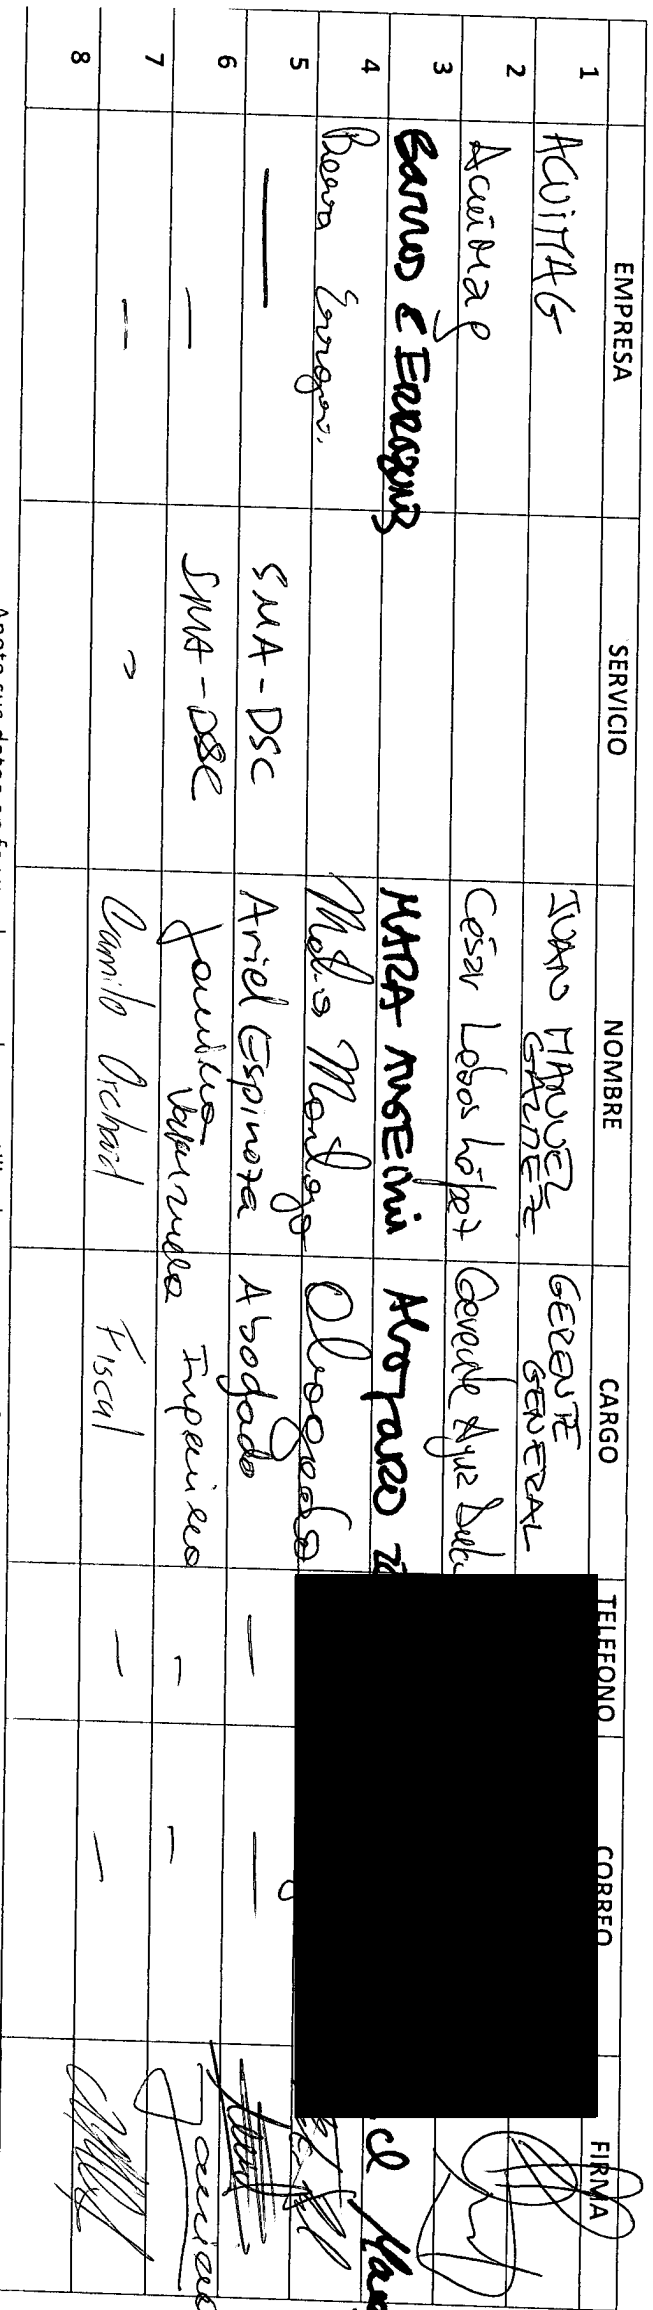 EMPRESA SERVICIO NOMBRE CARGO TELEFONO CORREO FIRMA
1 ACUIMAG JUAN MANUEL GALMEZ GERENTE GENERAL
2 Acuimag César Lobos López Gerente Agua Dulce
3 Barros & Errazuriz MARA ANGELINI Abogado cl
4 Barros Errazuriz Matias Montoya Abogado
5 — SMA-DSC Ariel Espinoza Abogado — —
6 — SMA-DSC Valenzuela Ingeniero – —
7 – – Camilo Orchard Fiscal — —
8